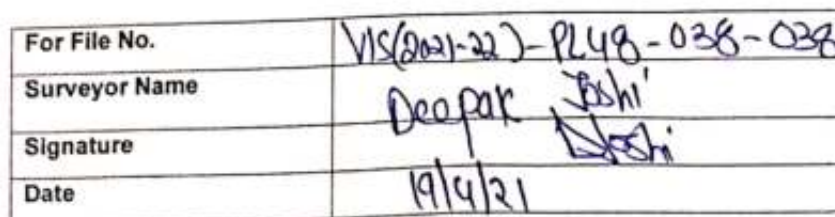 For File No. VIS(2021-22)-PL48-038-038
Surveyor Name Deepak Joshi
Signature DJoshi
Date 19/4/21